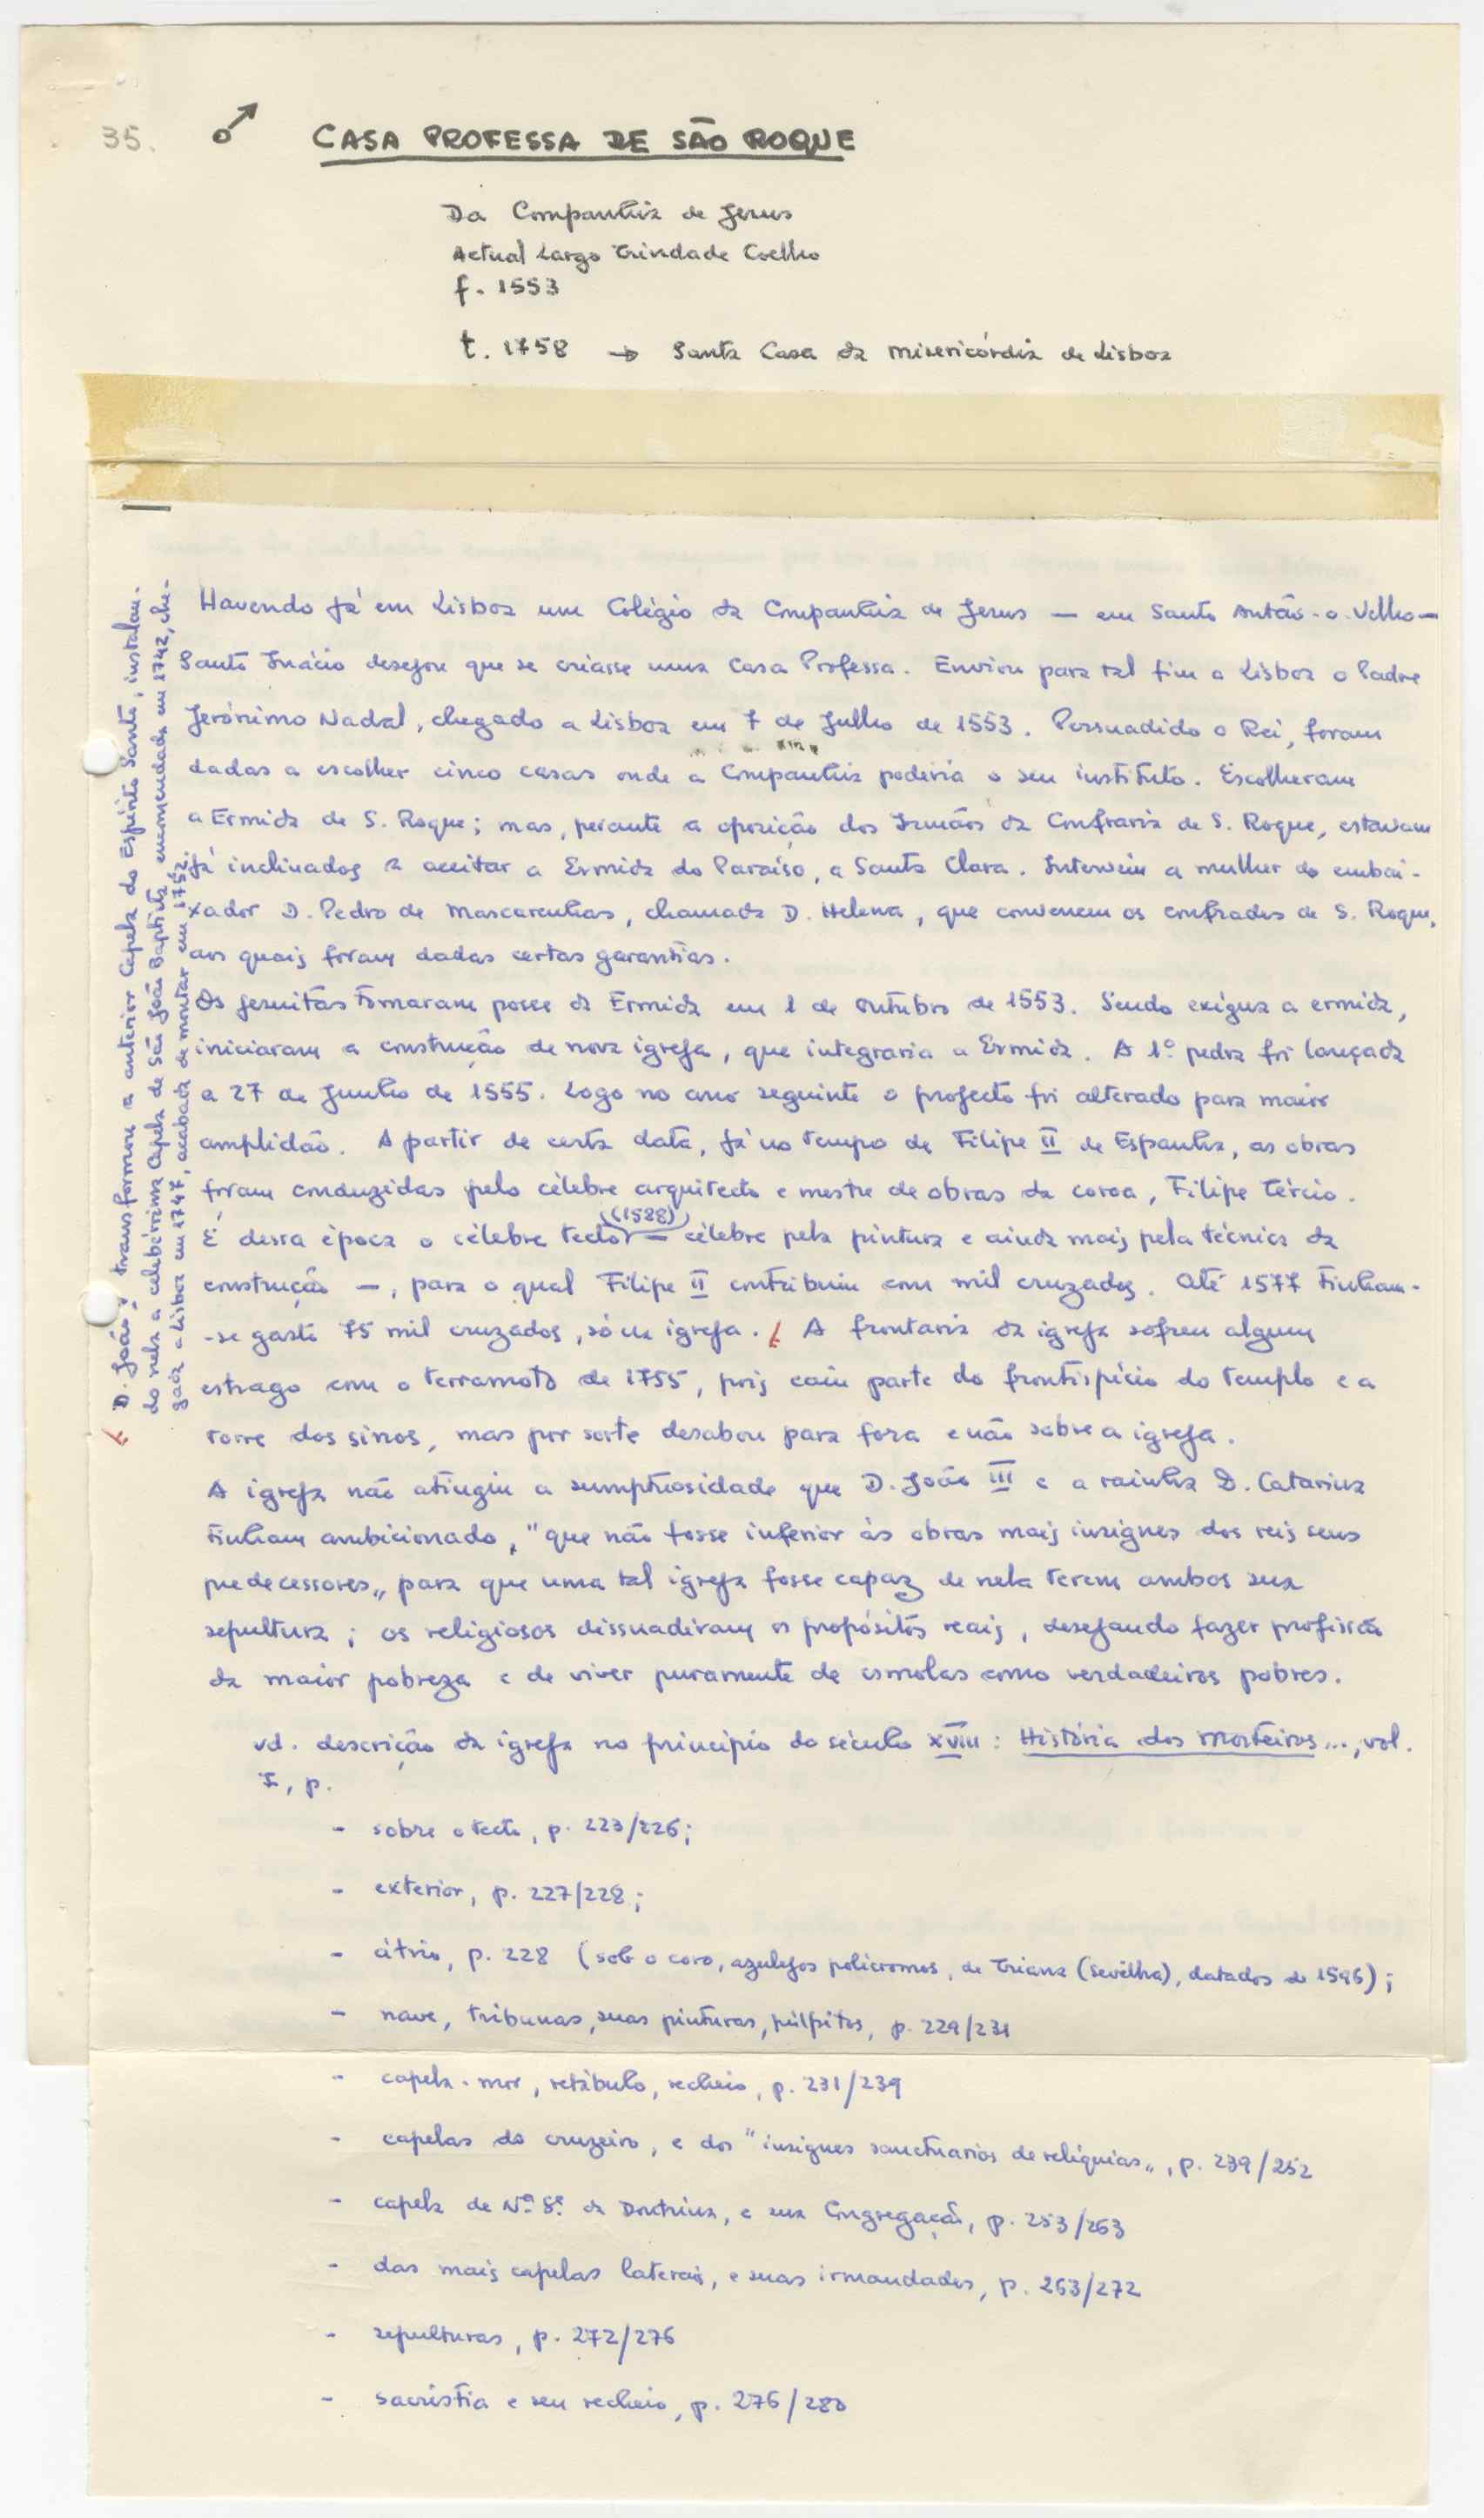 35.
♂ CASA PROFESSA DE SÃO ROQUE
Da Companhia de Jesus
Actual Largo Trindade Coelho
f. 1553
t. 1758 → Santa Casa da Misericórdia de Lisboa
Havendo já em Lisboa um Colégio da Companhia de Jesus — em Santo Antão-o-Velho —
Santo Inácio desejou que se criasse uma Casa Professa. Enviou para tal fim a Lisboa o Padre
Jerónimo Nadal, chegado a Lisboa em 7 de Julho de 1553. Persuadido o Rei, foram
dadas a escolher cinco casas onde a Companhia poderia o seu instituto. Escolheram
a Ermida de S. Roque; mas, perante a oposição dos Irmãos da Confraria de S. Roque, estavam
já inclinados a aceitar a Ermida do Paraíso, a Santa Clara. Interveiu a mulher do embai-
xador D. Pedro de Mascarenhas, chamada D. Helena, que convenceu os confrades de S. Roque,
aos quais foram dadas certas garantias.
Os jesuitas tomaram posse da Ermida em 1 de Outubro de 1553. Sendo exígua a ermida,
iniciaram a construção de nova igreja, que integraria a Ermida. A 1ª pedra foi lançada
a 27 de Junho de 1555. Logo no ano seguinte o projecto foi alterado para maior
amplidão. A partir de certa data, já no tempo de Filipe II de Espanha, as obras
foram conduzidas pelo célebre arquitecto e mestre de obras da coroa, Filipe Tércio.
É dessa época o célebre tecto (1588) — célebre pela pintura e ainda mais pela técnica da
construção —, para o qual Filipe II contribuiu com mil cruzados. Até 1577 tinham-
-se gasto 75 mil cruzados, só na igreja. A frontaria da igreja sofreu algum
estrago com o terramoto de 1755, pois caiu parte do frontispício do templo e a
torre dos sinos, mas por sorte desabou para fora e não sobre a igreja.
A igreja não atingiu a sumptuosidade que D. João III e a rainha D. Catarina
tinham ambicionado, "que não fosse inferior às obras mais insignes dos reis seus
predecessores„ para que uma tal igreja fosse capaz de nela terem ambos sua
sepultura; os religiosos dissuadiram os propósitos reais, desejando fazer profissão
da maior pobreza e de viver puramente de esmolas como verdadeiros pobres.
vd. descrição da igreja no princípio do século XVIII: História dos Mosteiros..., vol.
I, p.
- sobre o tecto, p. 223/226;
- exterior, p. 227/228;
- átrio, p. 228 (sob o coro, azulejos policromos, de Triana (Sevilha), datados de 1596);
- nave, tribunas, suas pinturas, púlpitos, p. 229/231
- capela-mor, retábulo, recheio, p. 231/239
- capelas do cruzeiro, e dos "insignes sanctuarios de reliquias„, p. 239/252
- capela de Nª. Sª. da Doutrina, e sua Congregação, p. 253/263
- das mais capelas laterais, e suas irmandades, p. 263/272
- sepulturas, p. 272/276
- sacristia e seu recheio, p. 276/280
D. João V transformou a anterior Capela do Espírito Santo, instalan-
do nela a celebérrima Capela de São João Baptista encomendada em 1742, che-
gada a Lisboa em 1747, acabada de montar em 1752.